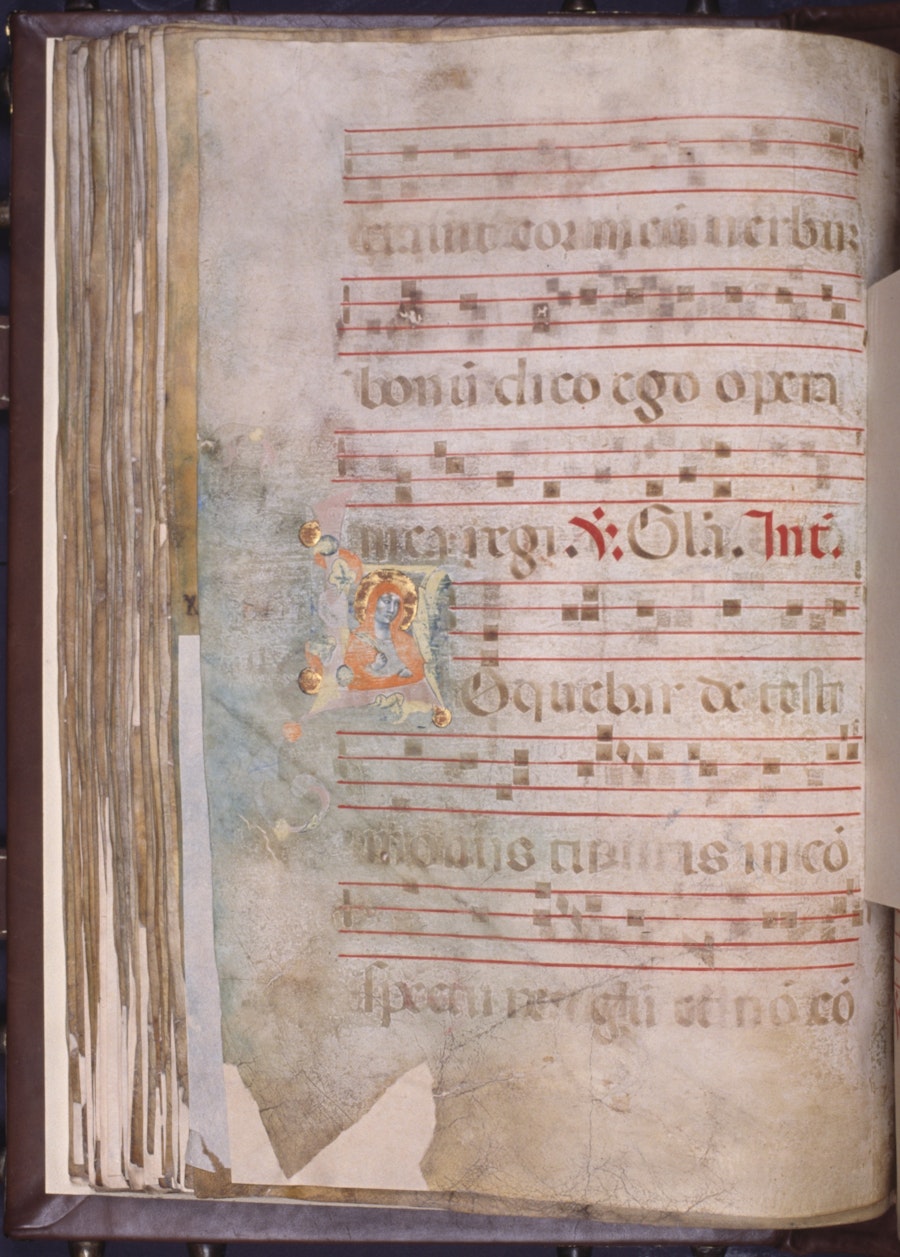 ctauit cor meū uerbum
bonū dico ego opera
mea regi. ℣. Glā. Int̄.
Loquebar de testi
monijs tuis in cō
spectu regū et nō cō